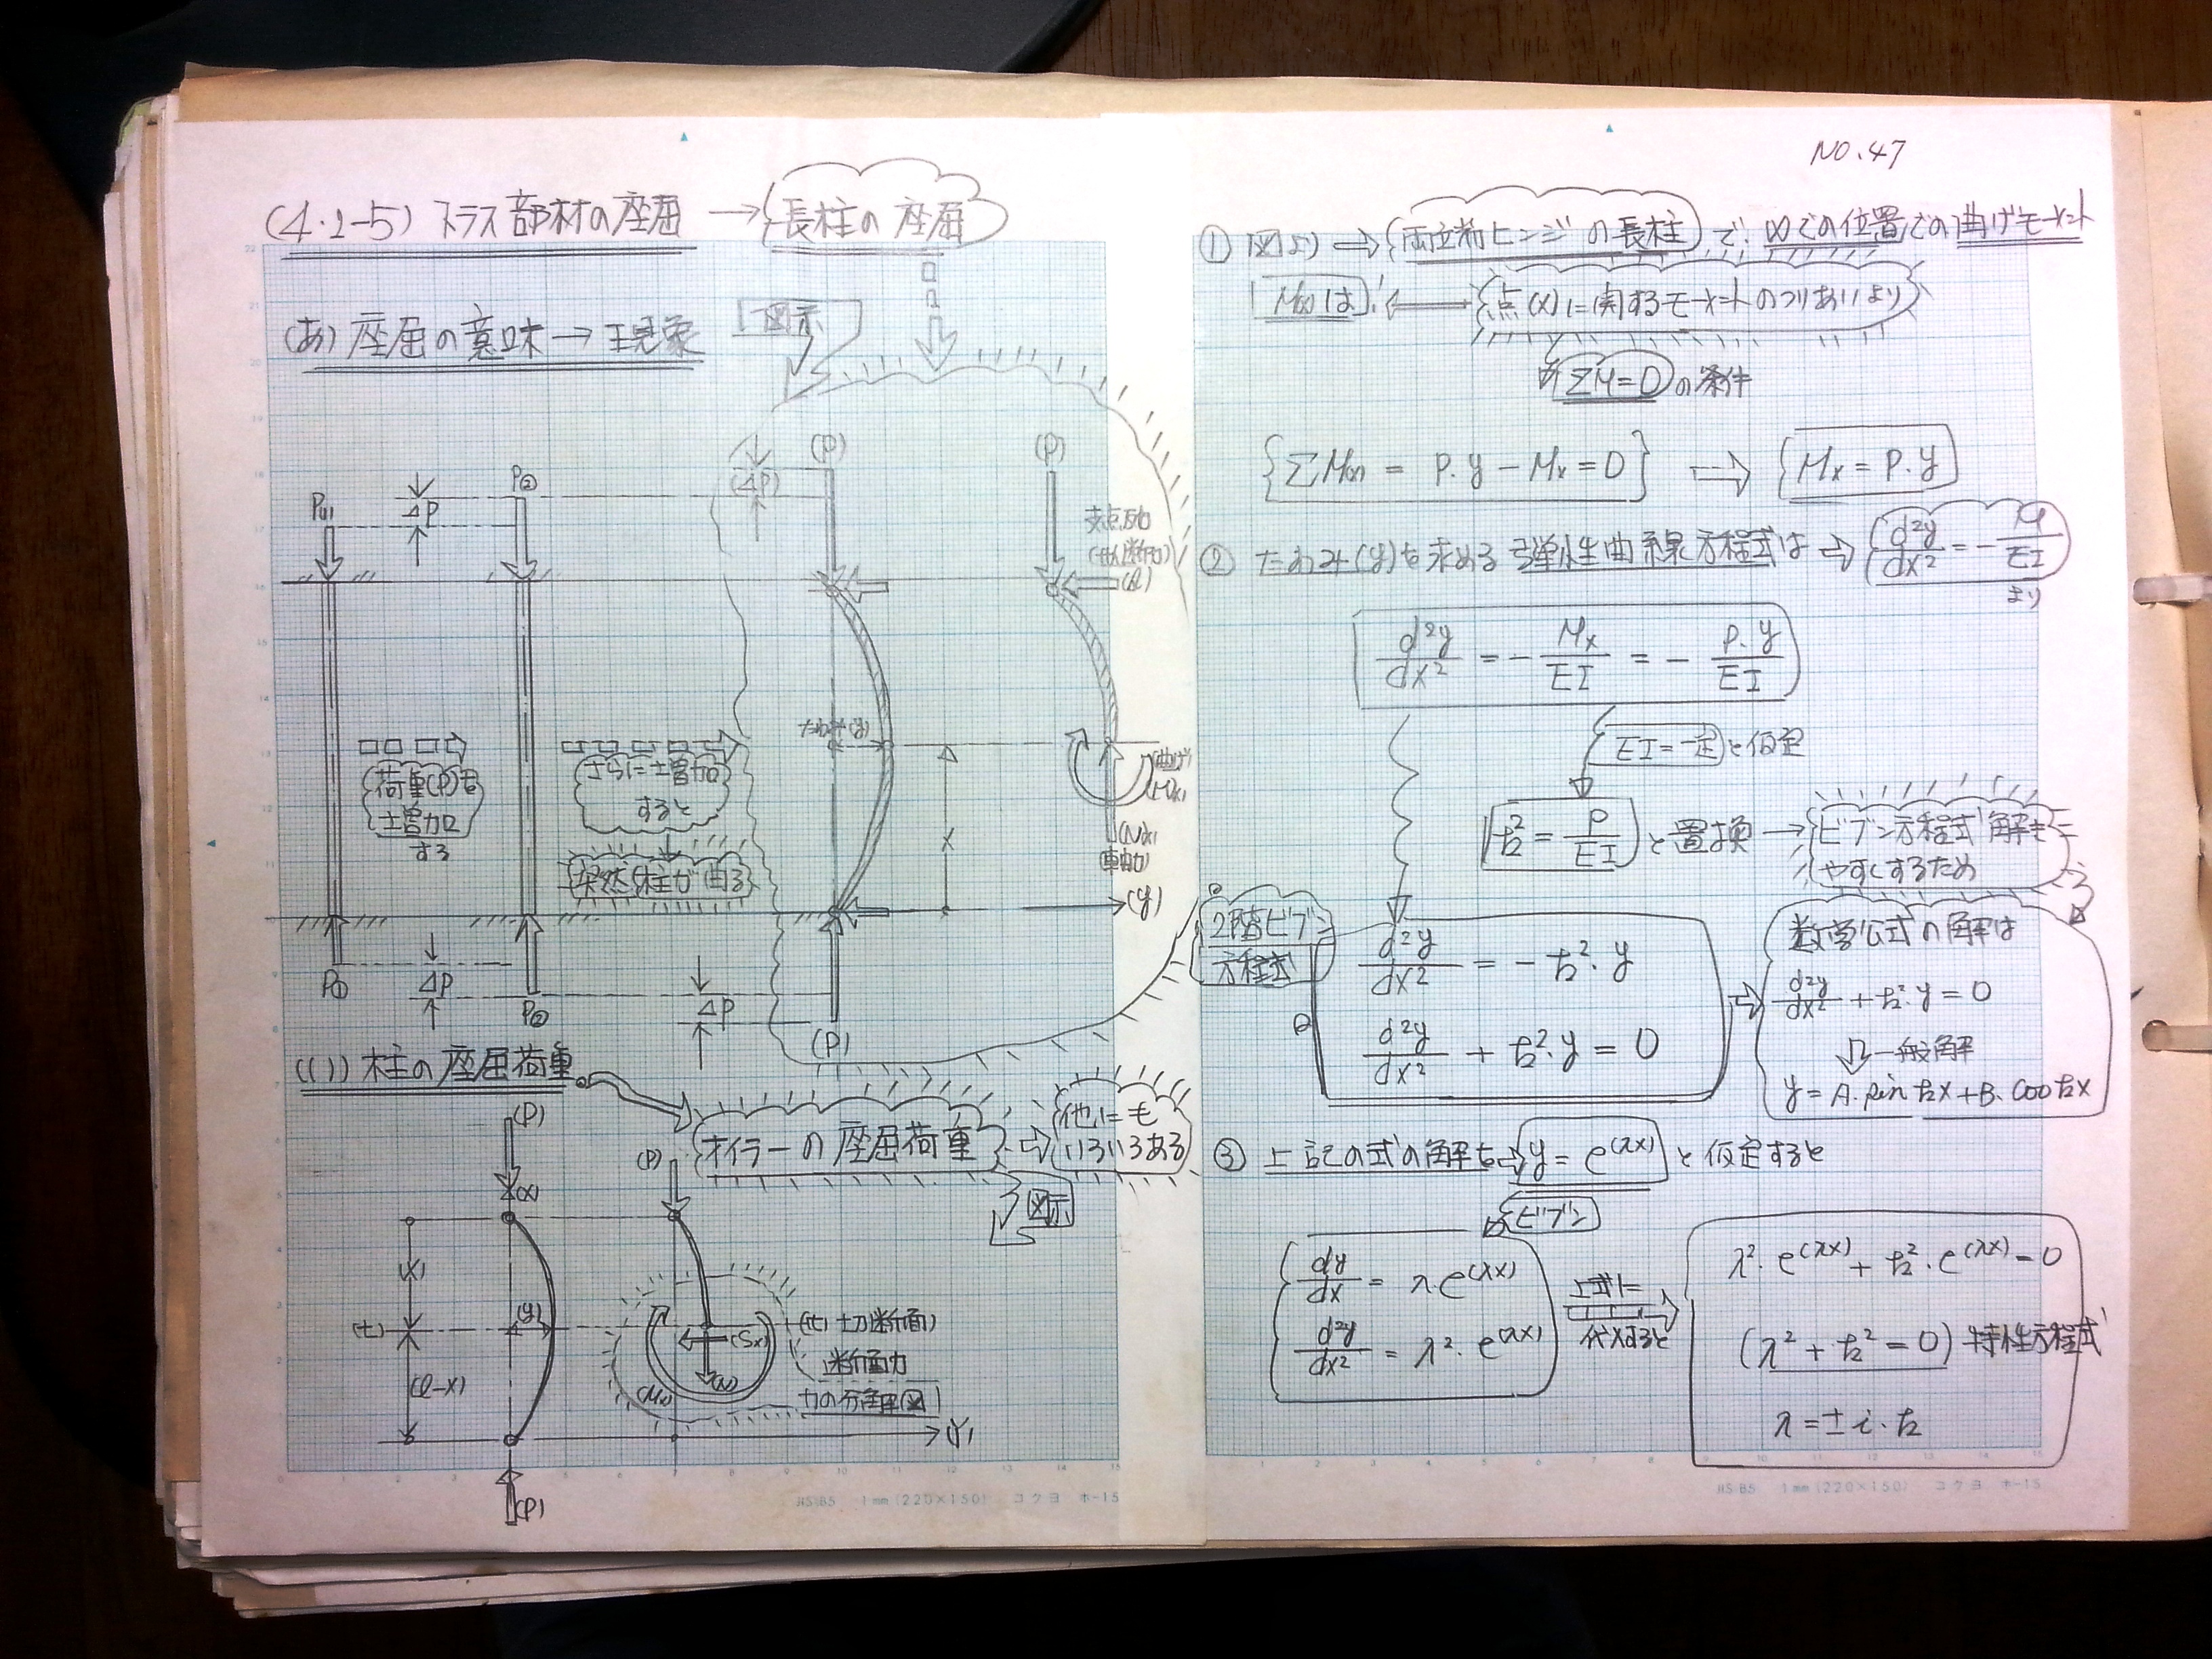 NO.47
(4.2-5) トラス部材の座屈 → 長柱の座屈
(あ) 座屈の意味 → 現象
図示
P(1)
ΔP
P(2)
(ΔP)
(P)
(P)
支点反力
荷重(P)を
増加
する
さらに増加
すると
突然柱が曲る
たわみ(y)
X
(曲げ)
(M(x))
(N(x))
軸力
(y)
P①
ΔP
P②
ΔP
(P)
(い) 柱の座屈荷重
オイラーの座屈荷重 ⇒ 他にも
いろいろある
図示
(P)
(x)
(P)
(X)
(t)
(y)
(l-x)
(Sx)
(N)
(Mx)
(t) 切断面
断面力
力の分解図
(Y)
(P)
① 図より ⇒ 両端ヒンジの長柱 で, (x)での位置での曲げモーメント
M(x)は, ⟷ 点(x)に関するモーメントのつりあいより
ΣM=0 の条件
{ΣM(x) = P.y − Mx = 0} ⇒ {Mx = P.y}
② たわみ(y)を求める 弾性曲線方程式は ⇒ d²y/dx² = − M/EI
より
d²y/dx² = − Mx/EI = − P.y/EI
EI=一定 と仮定
k² = P/EI と置換 → ビブン方程式 解を
やすくするため
2階ビブン
方程式
d²y/dx² = − k².y
d²y/dx² + k².y = 0
数学公式の解は
d²y/dx² + k².y = 0
⇓ 一般解
y = A.sin kx + B.cos kx
③ 上記の式の解を → y = e^(λx) と仮定すると
ビブン
dy/dx = λ.e^(λx)
d²y/dx² = λ².e^(λx)
上式に
代入すると
λ².e^(λx) + k².e^(λx) = 0
(λ² + k² = 0) 特性方程式
λ = ± i.k
JIS B5 1mm (220×150) コクヨ ホ-15
JIS B5 1mm (220×150) コクヨ ホ-15